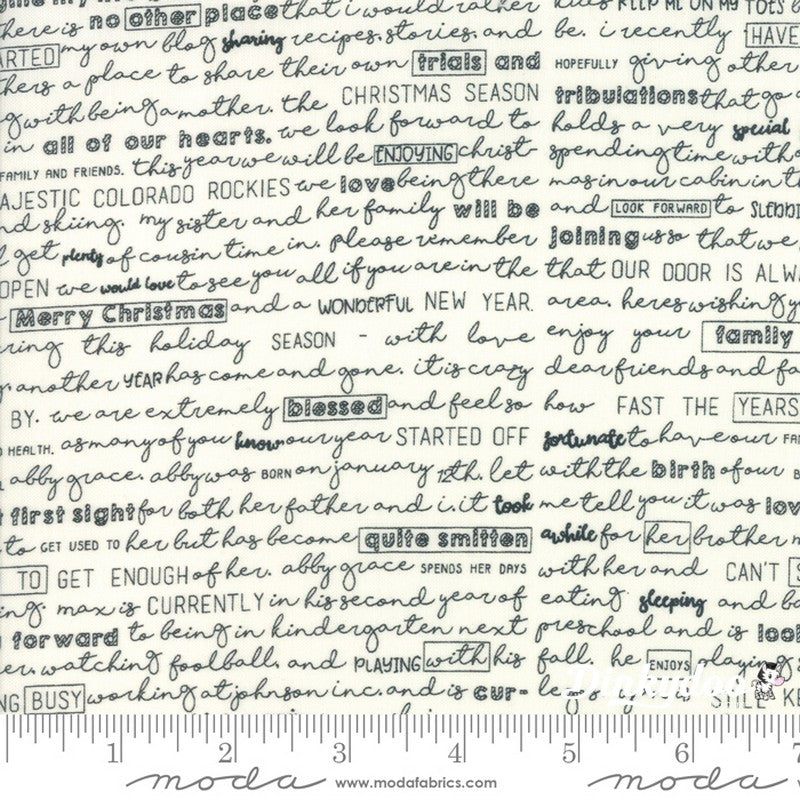 there is no other place that i would rather kids KEEP ME ON MY TOES
ARTED my own blog sharing recipes, stories, and be. i recently HAVE
thers a place to share their own trials and HOPEFULLY giving other
g with being a mother. the CHRISTMAS SEASON tribulations that go
in all of our hearts. we look forward to holds a very special
FAMILY AND FRIENDS. this year we will be ENJOYING christ- spending time with
AJESTIC COLORADO ROCKIES we love being there mas in our cabin in t
nd skiing. my sister and her family will be and LOOK FORWARD to SLEDDI
get plenty of cousin time in. please remember joining us so that we
OPEN we would love to see you all if you are in the that OUR DOOR IS ALWA
Merry Christmas and a WONDERFUL NEW YEAR. area. heres wishing y
ring this holiday SEASON - with love enjoy your family
another YEAR has come and gone. it is crazy dear friends and fa
BY. we are extremely blessed and feel so how FAST THE YEARS
HEALTH. as many of you know our year STARTED OFF fortunate to have our FA
abby grace. abby was BORN on january 12th. let with the birth of our
first sight for both her father and i. it took me tell you it was lov
to GET USED TO her but has become quite smitten awhile for her brother m
TO GET ENOUGH of her. abby grace SPENDS HER DAYS with her and CAN'T
ing. max is CURRENTLY in his second year of eating sleeping and ba
forward to being in kindergarten next preschool and is look
er. watching foolball, and PLAYING with his fall. he ENJOYS playing
NG BUSY working at johnson inc. and is cur- STILL KE
1 2 3 4 5 6 7
moda www.modafabrics.com moda